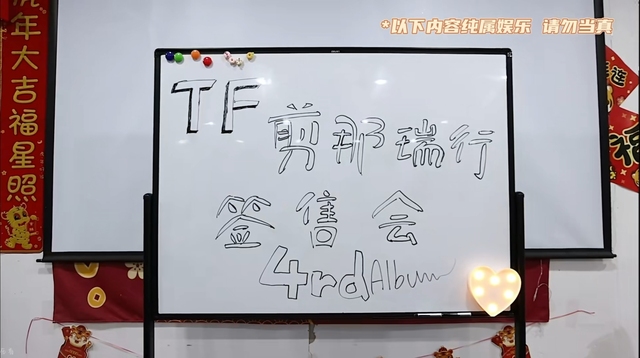 *以下内容纯属娱乐 请勿当真
虎年大吉福星照
TF
剪那瑞行
签售会
4rd Album
连
福